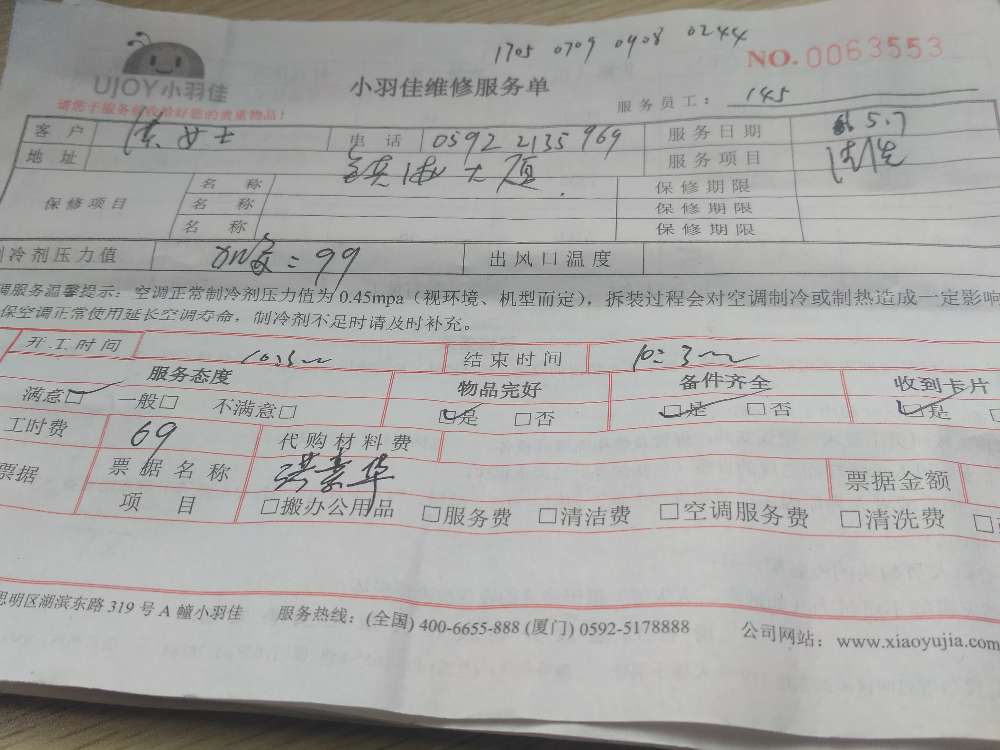 1705 0709 0908 0244
NO. 0063553
UJOY小羽佳
小羽佳维修服务单
请您于服务前收拾好您的贵重物品!
服务员工: 145
客户 女士 电话 0592 2135969 服务日期 5.7
地址 大厦 服务项目 清洗
保修项目 名称 保修期限
名称 保修期限
名称 保修期限
冷剂压力值 = 99 出风口温度
服务温馨提示: 空调正常制冷剂压力值为0.45mpa(视环境、机型而定),拆装过程会对空调制冷或制热造成一定影响
保空调正常使用延长空调寿命,制冷剂不足时请及时补充。
开工时间 结束时间
服务态度 物品完好 备件齐全 收到卡片
满意□ 一般□ 不满意□ □是 □否 □是 □否 □是
工时费 69 代购材料费
票据 票据名称 票据金额
项目 □搬办公用品 □服务费 □清洁费 □空调服务费 □清洗费
思明区湖滨东路319号A幢小羽佳 服务热线: (全国) 400-6655-888 (厦门) 0592-5178888 公司网站: www.xiaoyujia.com